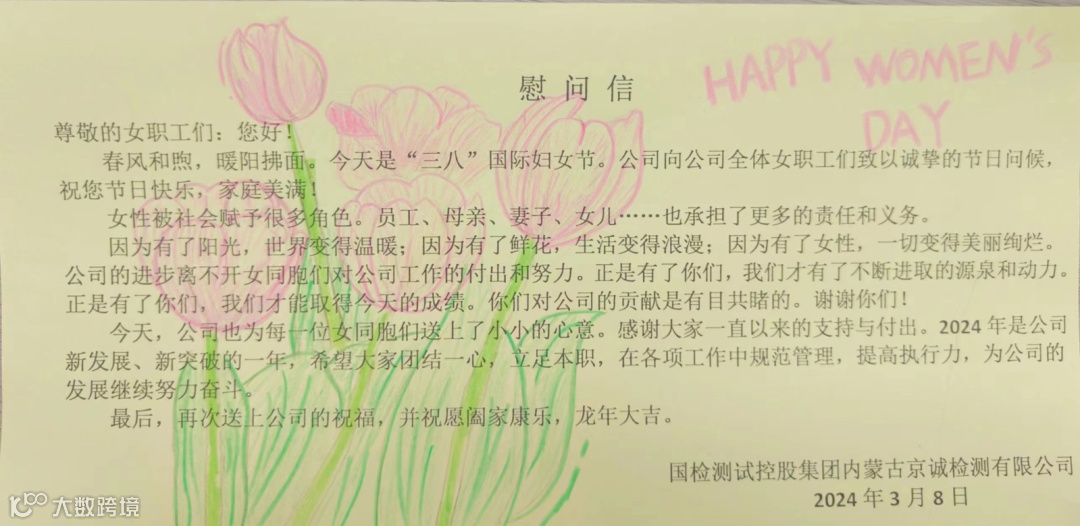 慰问信
HAPPY WOMEN'S
DAY
尊敬的女职工们：您好！
春风和煦，暖阳拂面。今天是“三八”国际妇女节。公司向公司全体女职工们致以诚挚的节日问候，
祝您节日快乐，家庭美满！
女性被社会赋予很多角色。员工、母亲、妻子、女儿……也承担了更多的责任和义务。
因为有了阳光，世界变得温暖；因为有了鲜花，生活变得浪漫；因为有了女性，一切变得美丽绚烂。
公司的进步离不开女同胞们对公司工作的付出和努力。正是有了你们，我们才有了不断进取的源泉和动力。
正是有了你们，我们才能取得今天的成绩。你们对公司的贡献是有目共睹的。谢谢你们！
今天，公司也为每一位女同胞们送上了小小的心意。感谢大家一直以来的支持与付出。2024年是公司
新发展、新突破的一年，希望大家团结一心，立足本职，在各项工作中规范管理，提高执行力，为公司的
发展继续努力奋斗。
最后，再次送上公司的祝福，并祝愿阖家康乐，龙年大吉。
国检测试控股集团内蒙古京诚检测有限公司
2024年3月8日
大数跨境